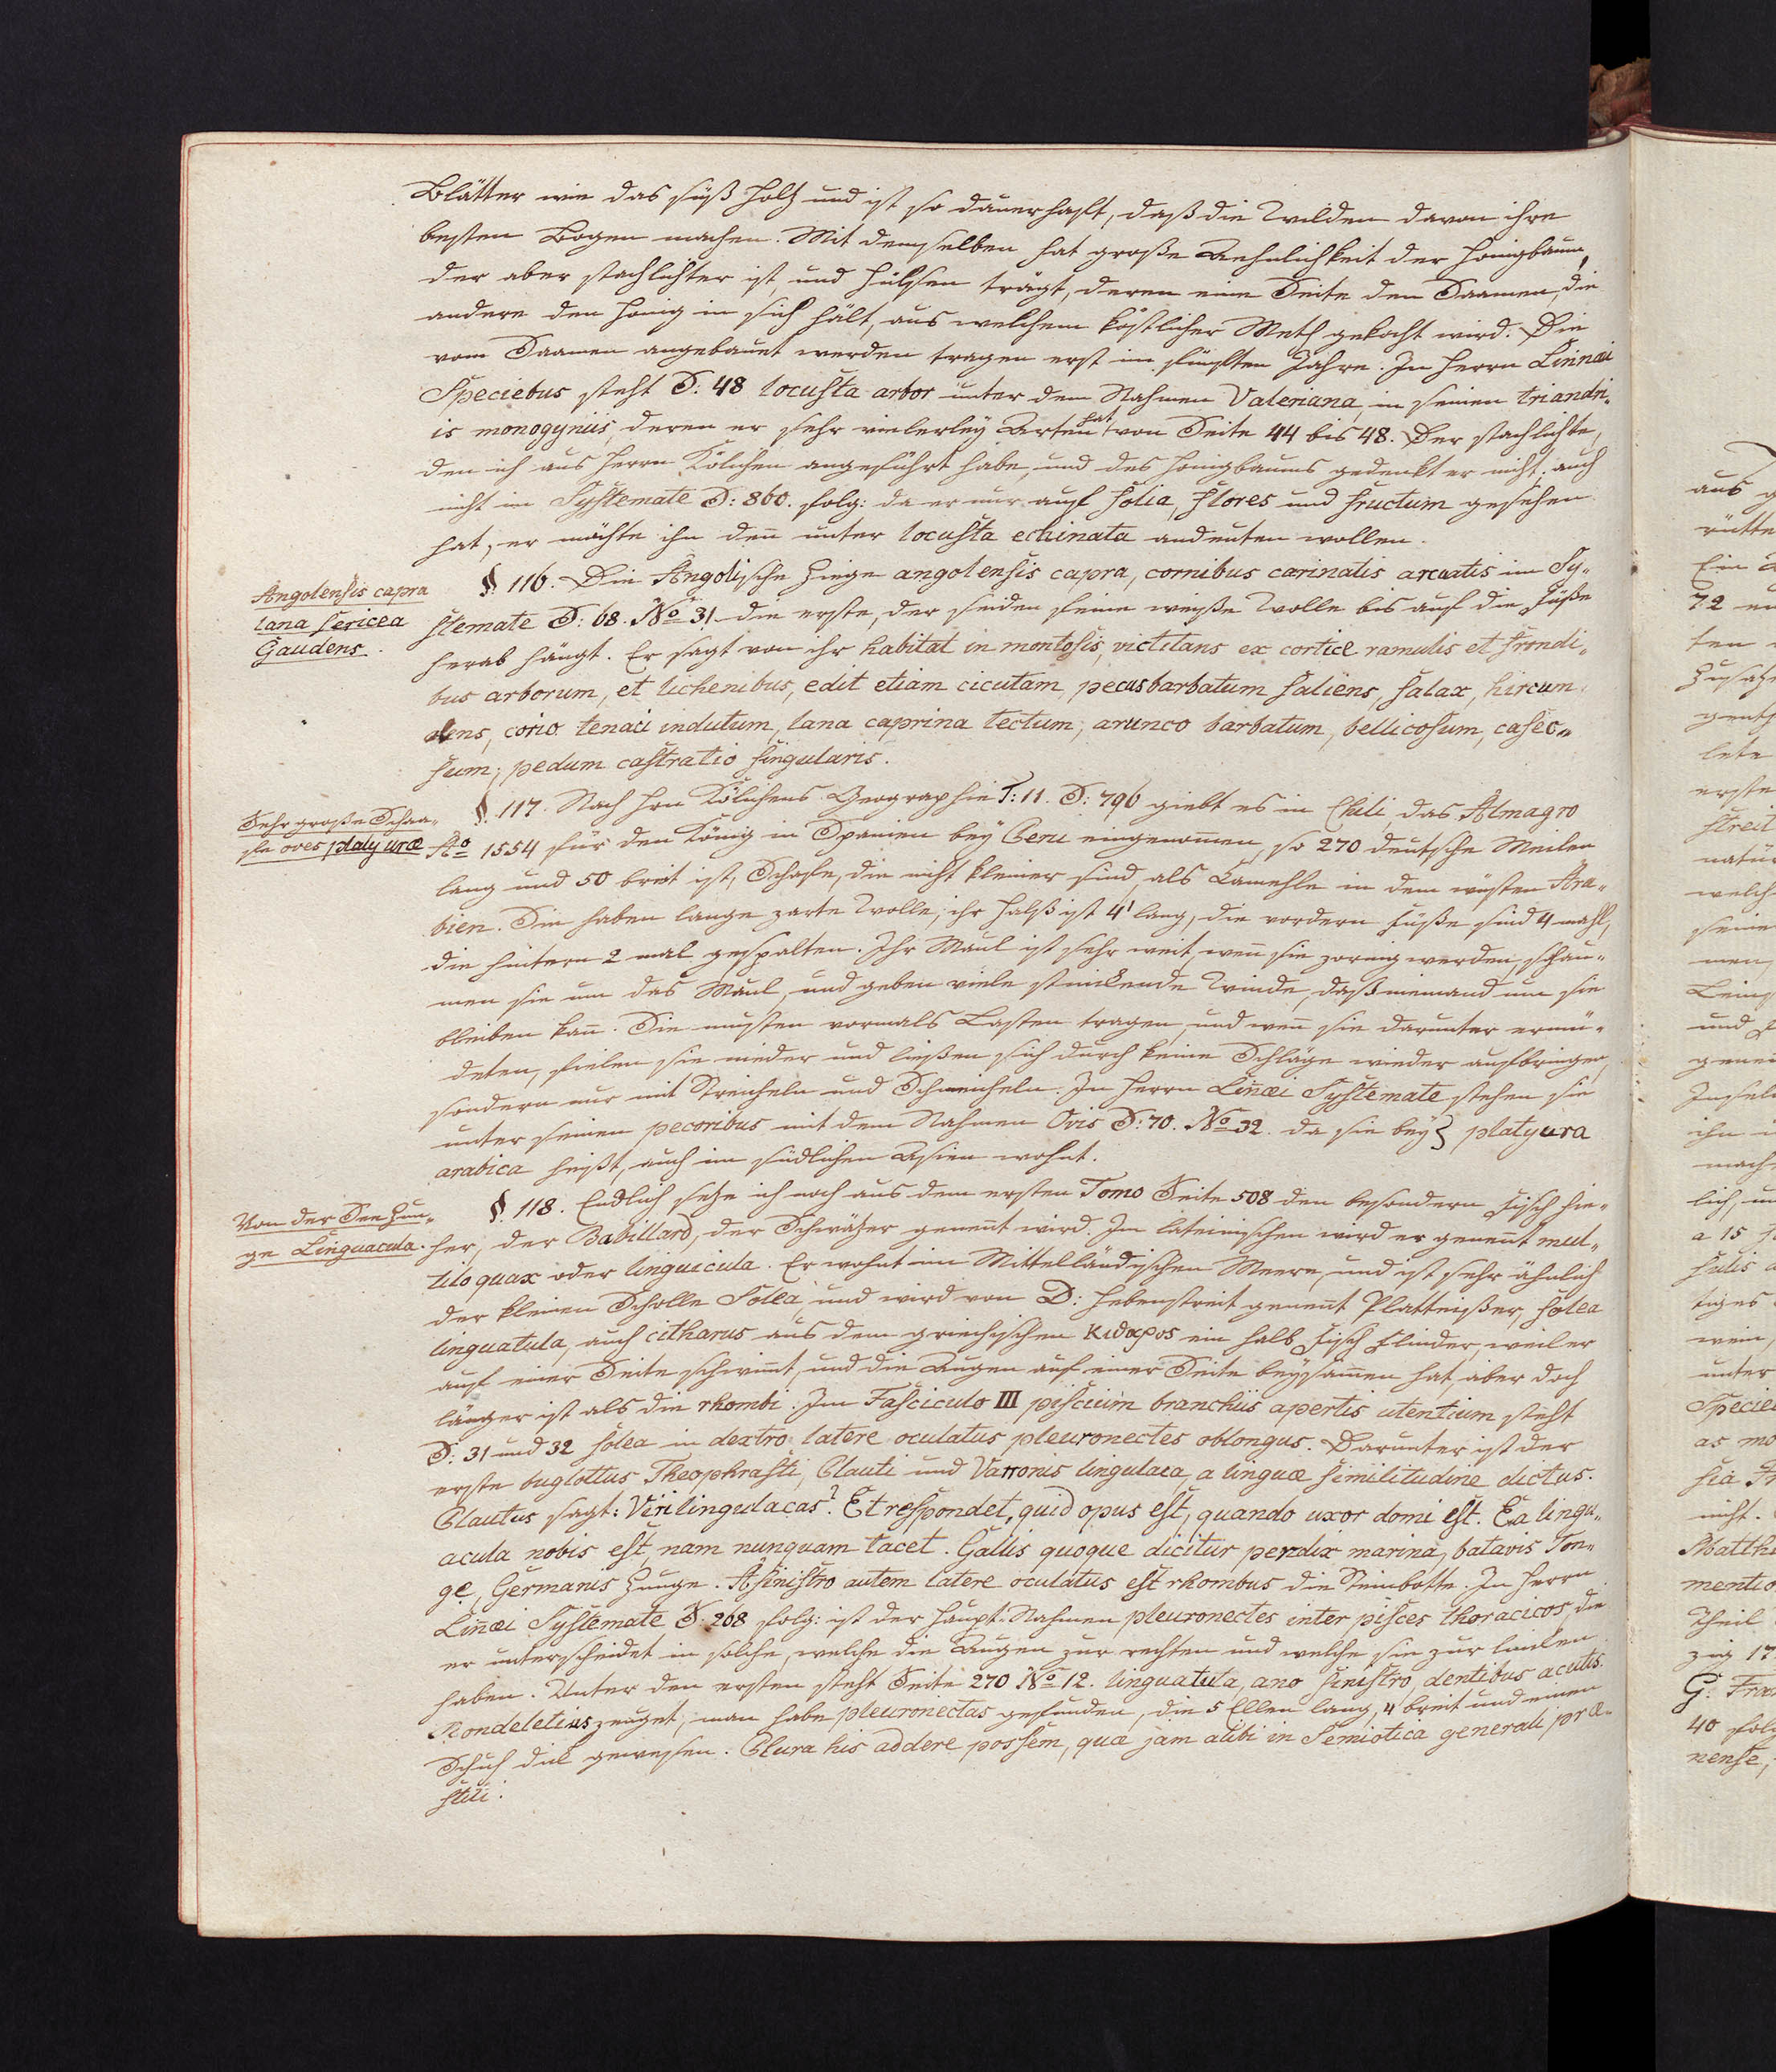 Blätter wie das süß Holtz und ist so dauerhafft, daß die Wilden davon ihre
besten Bogen machen. Mit demselben hat große Aehnlichkeit der Honigbaum,
der aber stachlichter ist, und Hülsen trägt, deren eine Seite den Saamen, die
andere den Honig in sich hält, aus welchem köstlicher Meth gekocht wird. Die
vom Saamen angebauet werden tragen erst im fünften Jahre. In Herrn Linnæi
Speciebus steht S: 48 locusta arbor unter dem Nahmen Valeriana in seinen triandri„
is monogyniis, deren er sehr vielerley Arten hat von Seite 44 bis 48. Der stachlichte,
den ich aus Herrn Kölichen angeführt habe, und des Honigbaums gedenkt er nicht, auch
nicht im Systemate S: 860. folg: da er nur auf folia, flores und fructum gesehen
hat, er möchte ihn deñ unter locusta echinata andeuten wollen.
Angolensis capra
lana sericea
Gaudens.
§. 116. Die Angolische Ziege angolensis capra, cornibus carinatis arcuatis im Sy„
stemate S: 68. No 31. die erste, der seiden feine weiße Wolle bis auf die Füße
herab hängt. Er sagt von ihr habitat in montosis, victitans ex cortice ramulis et frondi„
bus arborum, et lichenibus, edit etiam cicutam, pecus barbatum saliens, salax, hircum
olens, corio tenaci indutum, lana caprina tectum, arunco barbatum, bellicosum, caseo„
sum; pedum castratio singularis.
Sehr große Schaa„
fe oves platyuræ
§. 117. Nach Hrn Kölichens Geographie T: 11. S: 796 giebt es in Chili, das Almagro
Ao 1554 für den König in Spanien bey Peru eingenom̃en, so 270 deutsche Meilen
lang und 50 breit ist, Schafe, die nicht kleiner sind, als Camehle in dem wüsten Ara„
bien. Sie haben lange zarte Wolle, ihr Halß ist 4' lang, die vordern Füße sind 4 mahl,
die hintern 2 mal gespalten. Ihr Maul ist sehr weit, weñ sie zornig werden, schäu„
men sie um das Maul, und geben viele stinckende Winde, daß niemand um sie
bleiben kañ. Sie musten vormals Lasten tragen, und weñ sie darunter ermü„
deten, fielen sie nieder und ließen sich durch keine Schläge wieder aufbringen,
sondern nur mit Streicheln und Schmeicheln. In Herrn Liñæi Systemate stehen sie
unter seinen pecoribus mit dem Nahmen Ovis S: 70. No 32. da sie bey } platyura
arabica heißt, auch im südlichen Asien wohnt.
Von der See Zun„
ge Linguacula.
§. 118. Endlich setze ich noch aus dem ersten Tomo Seite 508 den besondern Fisch hie„
her, der Babillard, der Schwätzer geneñt wird. Im lateinischen wird er geneñt mul„
tiloquax oder linguicula. Er wohnt im Mittelländischen Meere, und ist sehr ähnlich
der kleinen Scholle Solea, und wird von D: Hebenstreit geneñt Platteißer, solea
linguatula, auch citharus aus dem griechischen κιδαρος ein halb Fisch Flinder, weil er
auf einer Seite schwim̃t, und die Augen auf einer Seite beysam̃en hat, aber doch
länger ist als die rhombi. Im Fasciculo III piscium branchiis apertis utentium steht
S: 31 und 32 solea in dextro latere oculatus pleuronectes oblongus. Darunter ist der
erste buglottus Theophrasti, Plauti und Varronis lingulaca, a linguæ similitudine dictus.
Plautus sagt: Viri lingulacas? Et respondet, quid opus est, quando uxor domi est. Ea lingu„
acula nobis est, nam nunquam tacet. Gallis quoque dicitur perdix marina, batavis Ton„
ge, Germanis Zunge. A sinistro autem latere oculatus est rhombus die Steinbotte. In Herrn
Liñæi Systemate S. 268 folg: ist der Haupt-Nahmen pleuronectes inter pisces thoracicos, die
er unterscheidet in solche, welche die Augen zur rechten und welche sie zur lincken
haben. Unter den ersten steht Seite 270 No 12. linguatula, ano sinistro, dentibus acutis.
Rondeletius zeuget, man habe pleuronectas gefunden, die 5 Ellen lang, 4 breit und einen
Schuh dick gewesen. Plura his addere possem, quæ jam alibi in Semiotica generali præ„
stiti.